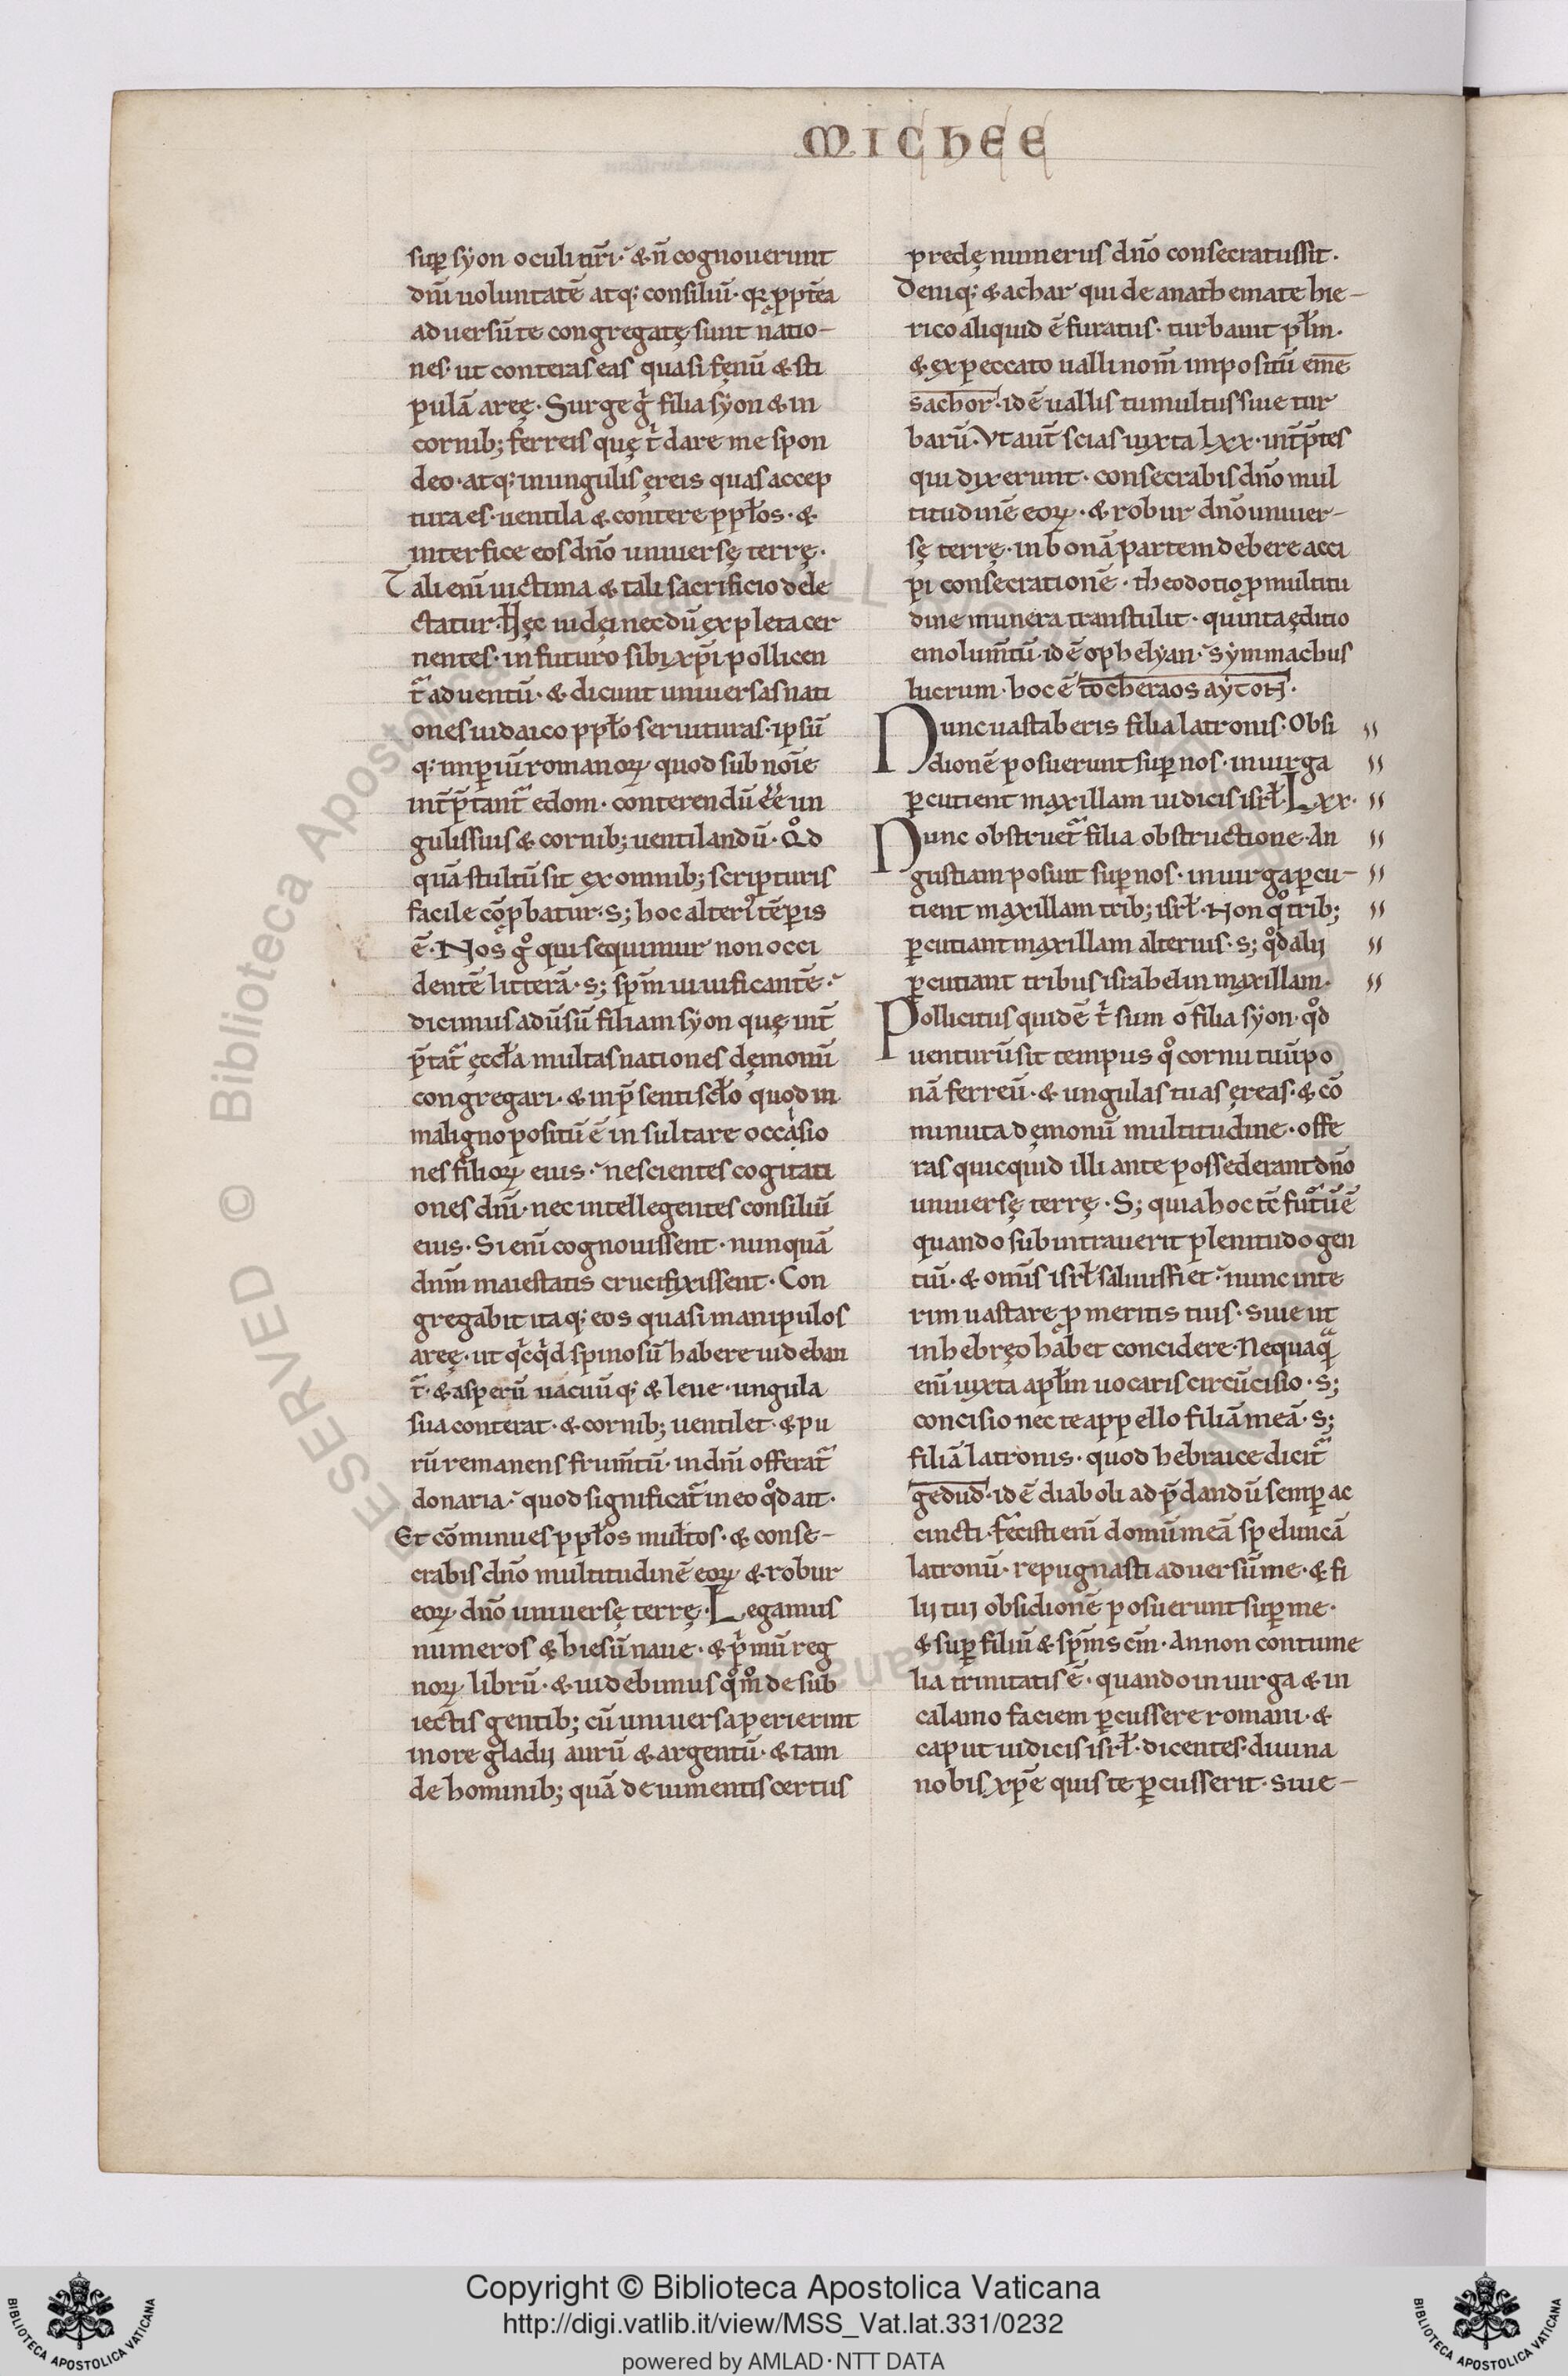 MICHEE
sup̄ syon oculi nr̄i. & n̄ cognouerunt
dn̄i uoluntatē atq; consiliū. qꝛ ꝓpt̄ea
aduersū te congregatę sunt natio-
nes. ut conteras eas quasi fęnū & sti
pulā areę. Surge gͥ filia syon & in
cornib; ferreis quę tͥ dare me spon
deo. atq; in ungulis ęreis quas accep
tura es. uentila & contere ppl̄os. &
interfice eos dn̄o uniuersę terrę.
Tali eni᷒ uictima & tali sacrificio dele
ctatur. Hęc iudęi necdū expleta cer
nentes. in futuro sibi xp̄i pollicen
t᷒ aduentū. & dicunt uniuersas nati
ones iudaico ppl̄o seruituras. ipsū
q; imꝑiū romanoꝝ quod sub noīe
int̄p̄tant᷒ edom. conterendū eē un
gulis suis & cornib; uentilandū. Qͦd
quā stultū sit ex omnib; scripturis
facile cō̄ꝓbatur. s; hoc alteriͧ tēꝑis
ē. Nos gͦ qui sequimur non occi
dentē litterā. s; sp̄m uiuificantē.
dicimus adūsū filiam syon quę int̄
p̄tat᷒ ęccl̄a multas nationes dęmonū
congregari. & in p̄senti scl̄o quod in
maligno positū ē insultare occasio
nes filioꝝ eius. nescientes cogitati
ones dn̄i. nec intellegentes consiliū
eius. Si eni᷒ cognouissent. nunquā
dnm̄ maiestatis crucifixissent. Con
gregabit itaq; eos quasi manipulos
areę. ut qͥcqͥd spinosū habere uideban
t᷒. & asperū uacuūq; & leue. ungula
sua conterat. & cornib; uentilet. & pu
rū remanens frum̄tū. in dn̄i offerat᷒
donaria. quod significat᷒ in eo qͦd ait.
Et cōminues ppl̄os multos. & conse-
crabis dn̄o multitudinē eoꝝ & robur
eoꝝ. dn̄o uniuersę terrę. Legamus
numeros & hiesū naue. & pͥmū reg
noꝝ librū. & uidebimus qͦm̊ de sub
iectis gentib; cū uniuersa perierint
in ore gladij aurū & argentū. & tam
de hominib; quā de iumentis certus
predę numerus dn̄o consecratus sit.
Deniq; & achar qui de anathemate hie-
rico aliquid ē furatus. turbauit pl̄m.
& ex peccato ualli nom̄ impositū eme
sachor. id ē uallis tumultus siue tur
barū. Vt aut̄ scias iuxta lxx. int̄p̄tes
qui dixerunt. consecrabis dn̄o mul
titudinē eoꝝ. & robur dn̄o uniuer-
sę terrę. in bonā partem debere acci
pi consecrationē. theodotio ꝓ multitu
dine munera transtulit. quinta ęditio
emolum̄tū. id ē ophelyan. symmachus
lucrum. hoc ē tocheraos aytoн.
Nunc uastaberis filia latronis. Obsi
dionē posuerunt suꝑ nos. in uirga
ꝑcutient maxillam iudicis isrl̄. Lxx.
Nunc obstruet᷒ filia obstructione. An
gustiam posuit suꝑ nos. in uirga ꝑcu-
tient maxillam trib; isrl̄. Non qͦ trib;
ꝑcutiant maxillam alterius. s; qͦd alij
ꝑcutiant tribus israhel in maxillam.
Pollicitus quidē tͥ sum o filia syon. qͦd
uenturū sit tempus qͦ cornu tuū po
nā ferreū. & ungulas tuas ęreas. & cō
minuta dęmonū multitudine. offe
ras quicquid illi ante possederant dn̄o
uniuersę terrę. S; quia hoc tē᷒ futūͬ ē
quando subintrauerit plenitudo gen
tiū. & omīs isrl̄ saluus fiet. nunc inte
rim uastare ꝓ meritis tuis. siue ut
in hebręo habet concidere. Nequaqͣ
eni᷒ iuxta apl̄m uocaris circūcisio. s;
concisio nec te appello filiā meā. s;
filiā latronis. quod hebraice dicit᷒
gedud. id ē diaboli ad p̄dandū semꝑ ac
cincti. Fecisti eni᷒ domū meā speluncā
latronū. repugnasti aduersū me. & fi
lij tui obsidionē posuerunt suꝑ me.
& suꝑ filiū & sp̄m sc̄m. An non contume
lia trinitatis ē. quando in uirga & in
calamo faciem ꝑcussere romani. &
caput iudicis isrl̄. dicentes. diuina
nobis xp̄e quis te ꝑcusserit. siue-
RESERVED © Biblioteca Apostolica Vaticana
Copyright © Biblioteca Apostolica Vaticana
http://digi.vatlib.it/view/MSS_Vat.lat.331/0232
powered by AMLAD·NTT DATA
BIBLIOTECA APOSTOLICA VATICANA
BIBLIOTECA APOSTOLICA VATICANA